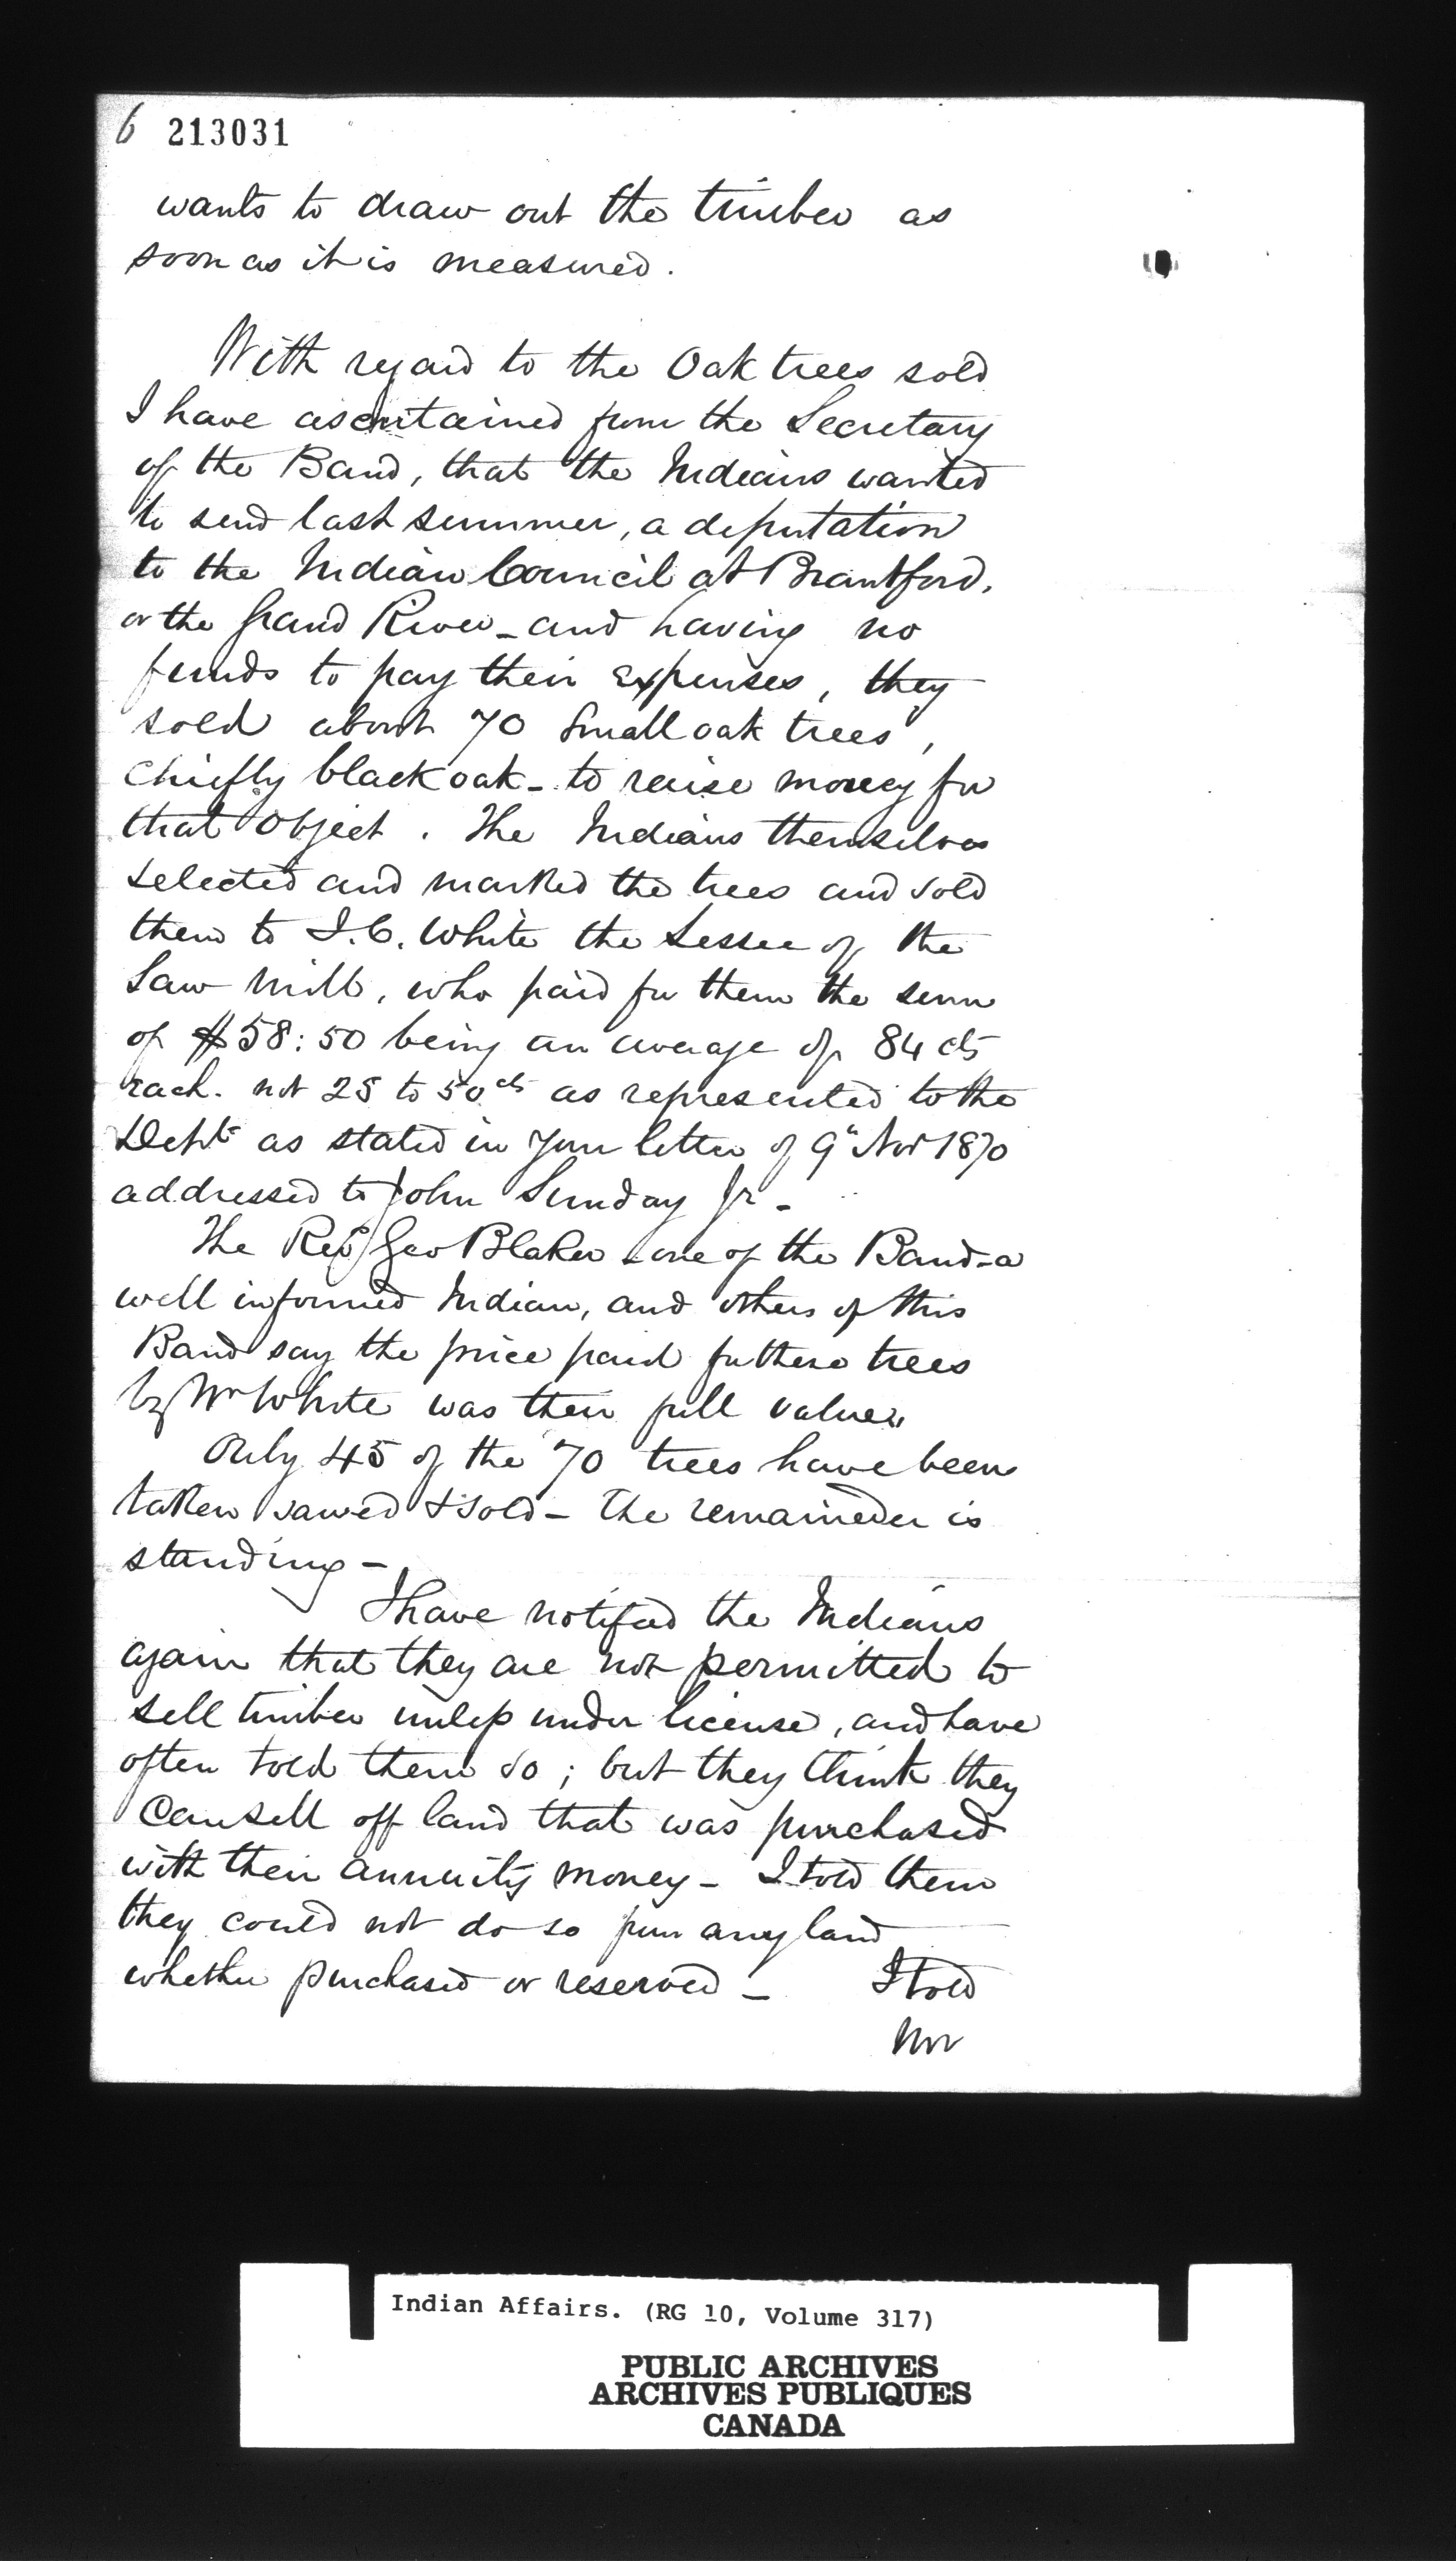 6 213031
wants to draw out the timber as
soon as it is measured.
With regard to the Oak trees sold
I have ascertained from the Secretary
of the Band, that the Indians wanted
to send last summer, a deputation
to the Indian Council at Brantford,
or the Grand River - and having no
funds to pay their expenses, they
sold about 70 small oak trees,
chiefly black oak - to raise money for
that object. The Indians themselves
selected and marked the trees and sold
them to I.C. White the Lessee of the
Saw Mill, who paid for them the sum
of $58:50 being an average of 84 cts
each. not 25 to 50 cts as represented to the
Dept as stated in your letter of 9" Nov 1870
addressed to John Sunday Jr -
The Revd Geo Blaker - one of the Band - a
well informed Indian, and others of this
Band say the price paid for these trees
by Mr White was their full value"
Only 45 of the 70 trees have been
taken sawed & sold - the remainder is
standing -
I have notified the Indians
again that they are not permitted to
sell timber unless under license, and have
often told them so; but they think they
can sell off land that was purchased
with their annuity money - I told them
they could not do so from any land
whether purchased or reserved - I told
Mr
Indian Affairs. (RG 10, Volume 317)
PUBLIC ARCHIVES
ARCHIVES PUBLIQUES
CANADA